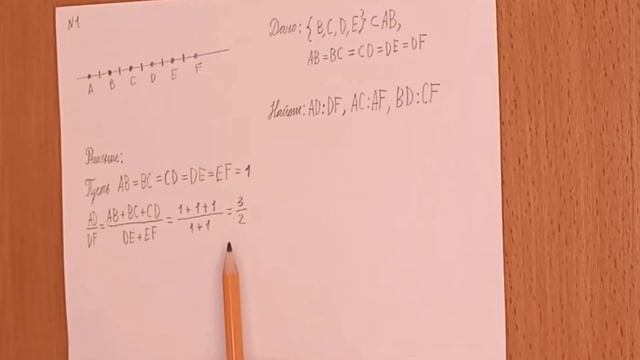 N1
A B C D E F
Дано: {B,C,D,E} ⊂ AB,
AB = BC = CD = DE = DF
Найти: AD:DF, AC:AF, BD:CF
Решение:
Пусть AB = BC = CD = DE = EF = 1
AD/DF = AB+BC+CD/DE+EF = 1+1+1/1+1 = 3/2